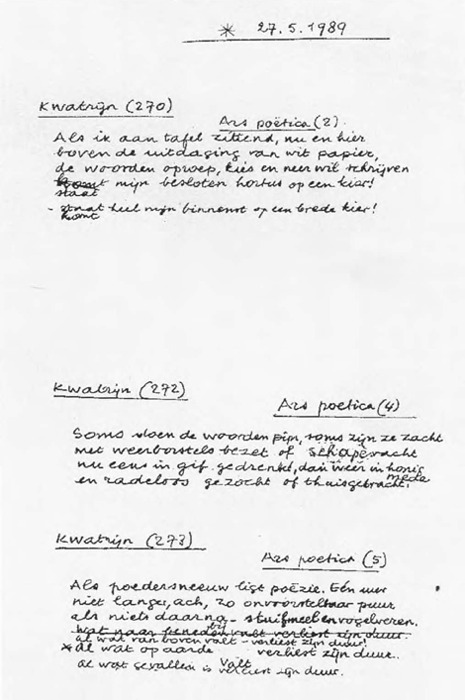 * 27.5.1989
Kwatrijn (270)
Ars poëtica (2)
Als ik aan tafel zittend, nu en hier
boven de uitdaging van wit papier,
de woorden oproep, kies en neer wil schrijven
komt mijn besloten hortus op een kier!
staat
- staat heel mijn binnenst op een brede kier!
komt
Kwatrijn (272)
Ars poetica (4)
Soms doen de woorden pijn, soms zijn ze zacht
met weerborstels bezet of schapevacht
nu eens in gif gedrenkt, dan weer in honig
mede
en radeloos gezocht of thuisgebracht.
Kwatrijn (273)
Ars poetica (5)
Als poedersneeuw ligt poëzie. Eén uur
niet langer, ach, zo onvoorstelbaar puur
als niets daarna - stuifmeel en vogelveren.
wat naar beneden valt verliest zijn duur.
al wat van boven valt - verliest zijn duur!
* al wat op aarde verliest zijn duur.
valt
al wat gevallen is verliest zijn duur.